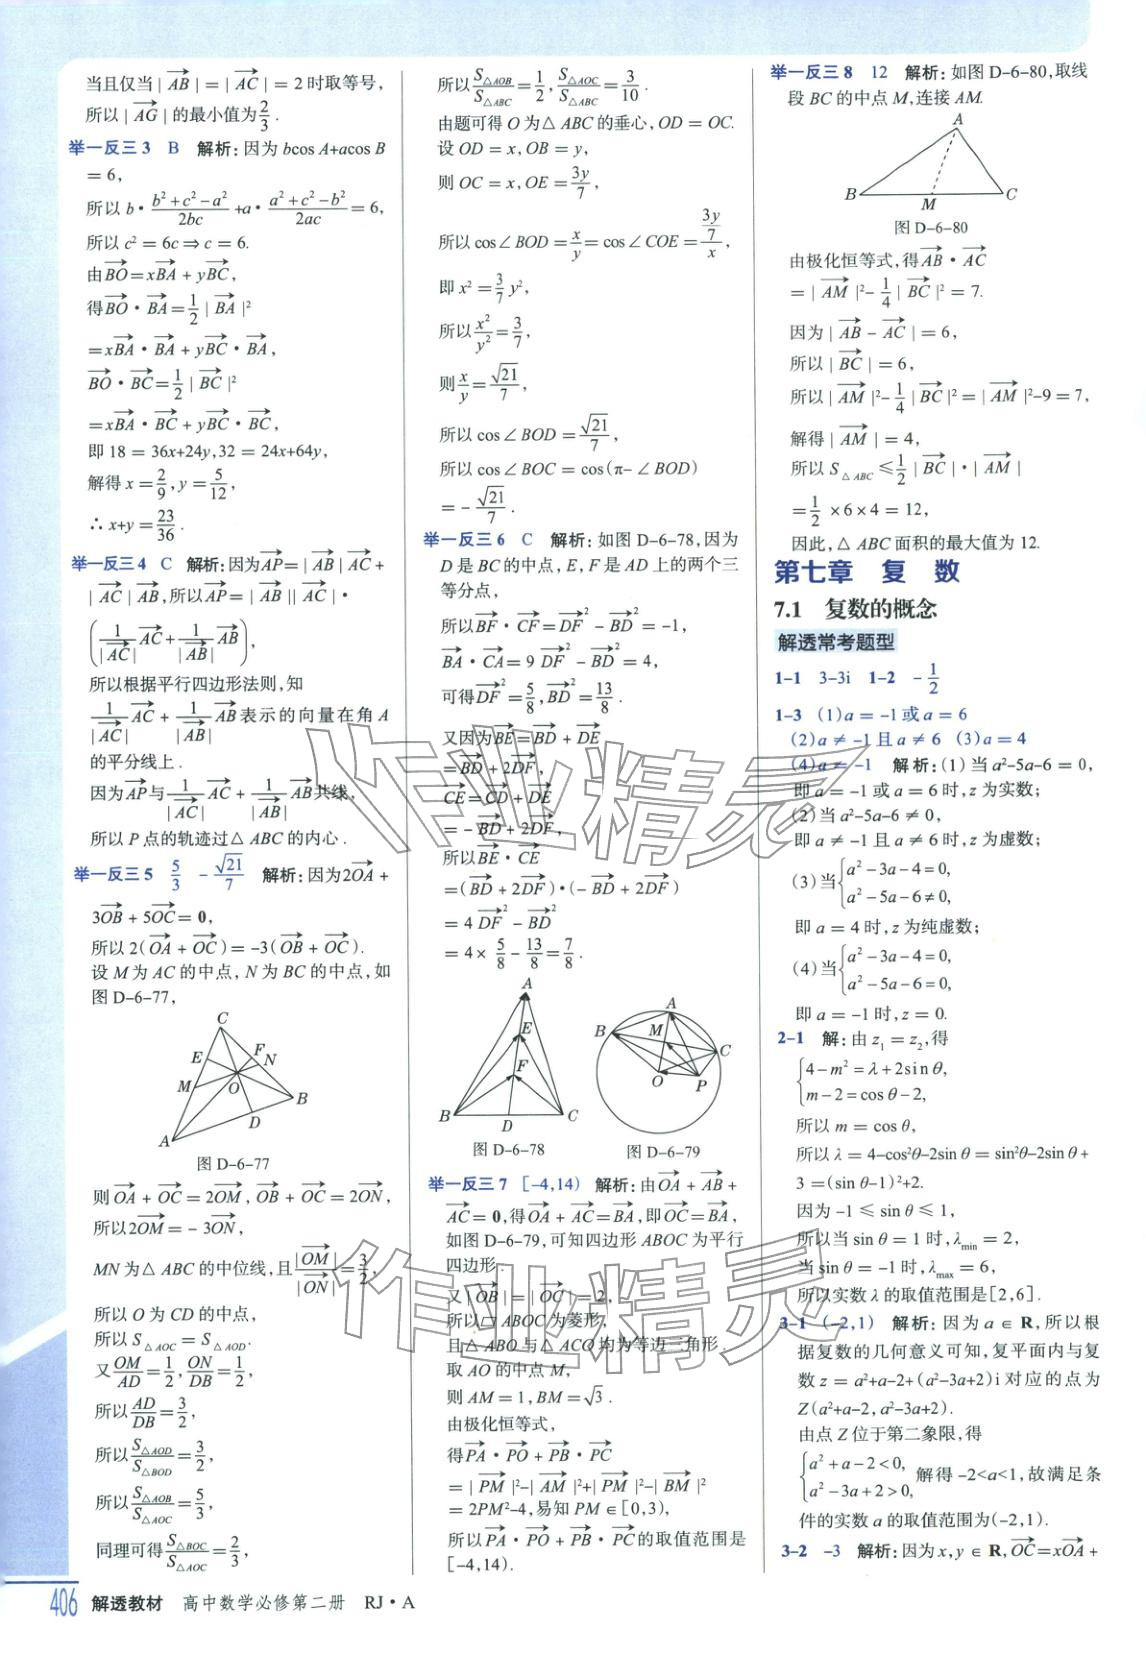 当且仅当|AB|=|AC|=2时取等号,
所以|AG|的最小值为2/3.
举一反三3 B 解析:因为bcos A+acos B
=6,
所以b·(b²+c²-a²)/2bc+a·(a²+c²-b²)/2ac=6,
所以c²=6c⇒c=6.
由BO=xBA+yBC,
得BO·BA=1/2|BA|²
=xBA·BA+yBC·BA,
BO·BC=1/2|BC|²
=xBA·BC+yBC·BC,
即18=36x+24y,32=24x+64y,
解得x=2/9,y=5/12,
∴x+y=23/36.
举一反三4 C 解析:因为AP=|AB|AC+
|AC|AB,所以AP=|AB||AC|·
(1/|AC| AC+1/|AB| AB),
所以根据平行四边形法则,知
1/|AC| AC+1/|AB| AB表示的向量在角A
的平分线上.
因为AP与1/|AC| AC+1/|AB| AB共线,
所以P点的轨迹过△ABC的内心.
举一反三5 5/3 -√21/7 解析:因为2OA+
3OB+5OC=0,
所以2(OA+OC)=-3(OB+OC).
设M为AC的中点,N为BC的中点,如
图D-6-77,
C
E
F
N
M
O
B
D
A
图D-6-77
则OA+OC=2OM,OB+OC=2ON,
所以2OM=-3ON,
MN为△ABC的中位线,且|OM|/|ON|=3/2,
所以O为CD的中点,
所以S△AOC=S△AOD.
又OM/AD=1/2,ON/DB=1/2,
所以AD/DB=3/2,
所以S△AOD/S△BOD=3/2,
所以S△AOB/S△AOC=5/3,
同理可得S△BOC/S△AOC=2/3,
所以S△AOB/S△ABC=1/2,S△AOC/S△ABC=3/10.
由题可得O为△ABC的垂心,OD=OC.
设OD=x,OB=y,
则OC=x,OE=3y/7,
所以cos∠BOD=x/y=cos∠COE=(3y/7)/x,
即x²=3/7y²,
所以x²/y²=3/7,
则x/y=√21/7,
所以cos∠BOD=√21/7,
所以cos∠BOC=cos(π-∠BOD)
=-√21/7.
举一反三6 C 解析:如图D-6-78,因为
D是BC的中点,E,F是AD上的两个三
等分点,
所以BF·CF=DF²-BD²=-1,
BA·CA=9DF²-BD²=4,
可得DF²=5/8,BD²=13/8.
又因为BE=BD+DE
=BD+2DF,
CE=CD+DE
=-BD+2DF,
所以BE·CE
=(BD+2DF)·(-BD+2DF)
=4DF²-BD²
=4×5/8-13/8=7/8.
A
E
F
B
D
C
图D-6-78
A
B
M
C
O
P
图D-6-79
举一反三7 [-4,14) 解析:由OA+AB+
AC=0,得OA+AC=BA,即OC=BA,
如图D-6-79,可知四边形ABOC为平行
四边形.
又|OB|=|OC|=2,
所以□ABOC为菱形,
且△ABO与△ACO均为等边三角形.
取AO的中点M,
则AM=1,BM=√3.
由极化恒等式,
得PA·PO+PB·PC
=|PM|²-|AM|²+|PM|²-|BM|²
=2PM²-4,易知PM∈[0,3),
所以PA·PO+PB·PC的取值范围是
[-4,14).
举一反三8 12 解析:如图D-6-80,取线
段BC的中点M,连接AM.
A
B
M
C
图D-6-80
由极化恒等式,得AB·AC
=|AM|²-1/4|BC|²=7.
因为|AB-AC|=6,
所以|BC|=6,
所以|AM|²-1/4|BC|²=|AM|²-9=7,
解得|AM|=4,
所以S△ABC≤1/2|BC|·|AM|
=1/2×6×4=12,
因此,△ABC面积的最大值为12.
第七章 复数
7.1 复数的概念
解透常考题型
1-1 3-3i 1-2 -1/2
1-3 (1)a=-1或a=6
(2)a≠-1且a≠6 (3)a=4
(4)a=-1 解析:(1)当a²-5a-6=0,
即a=-1或a=6时,z为实数;
(2)当a²-5a-6≠0,
即a≠-1且a≠6时,z为虚数;
(3)当{a²-3a-4=0,
a²-5a-6≠0,
即a=4时,z为纯虚数;
(4)当{a²-3a-4=0,
a²-5a-6=0,
即a=-1时,z=0.
2-1 解:由z₁=z₂,得
{4-m²=λ+2sin θ,
m-2=cos θ-2,
所以m=cos θ,
所以λ=4-cos²θ-2sin θ=sin²θ-2sin θ+
3=(sin θ-1)²+2.
因为-1≤sin θ≤1,
所以当sin θ=1时,λmin=2,
当sin θ=-1时,λmax=6,
所以实数λ的取值范围是[2,6].
3-1 (-2,1) 解析:因为a∈R,所以根
据复数的几何意义可知,复平面内与复
数z=a²+a-2+(a²-3a+2)i对应的点为
Z(a²+a-2,a²-3a+2).
由点Z位于第二象限,得
{a²+a-2<0,
a²-3a+2>0, 解得-2<a<1,故满足条
件的实数a的取值范围为(-2,1).
3-2 -3 解析:因为x,y∈R,OC=xOA+
作业精灵
作业精灵
406 解透教材 高中数学必修第二册 RJ·A